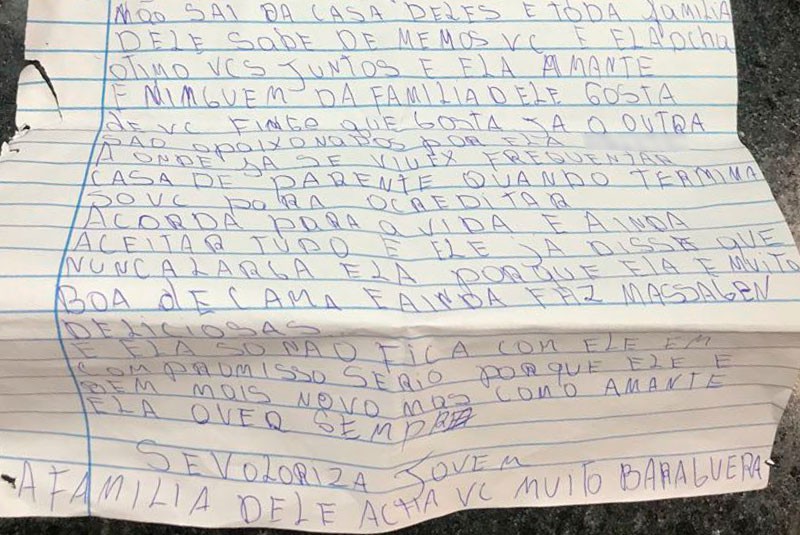 NÃO SAI DA CASA DELES E TODA familia
DELE SABE DE MEMOS VC E ELA acha
OTIMO VCS JUNTOS E ELA AMANTE
E NIMGUEM DA FAMILIA DELE GOSTA
de VC FINGE QUE GOSTA JA A OUTRA
SÃO APAIXONADOS POR ELA
A ONDE JA SE VIU EX FREQUENTAR
CASA DE PARENTE QUANDO TERMINA
SO VC PARA ACREDITAR
ACORDA PARA a VIDA E AINDA
ACEITAR TUDO E ELE JA DISSE QUE
NUNCA LARGA ELA PORQUE ELA E MUITO
BOA dE CAMA E AINDA FAZ MASSAGEN
DELICIOSAS
E ELA SO NÃO FICA COM ELE EM
COMPROMISSO SERIO PORQUE ELE E
BEM MAIS NOVO MAS COMO AMANTE
ELA QUER SEMPRE
SE VALORIZA JOVEM
A FAMILIA DELE ACHA VC MUITO BARAGUERA